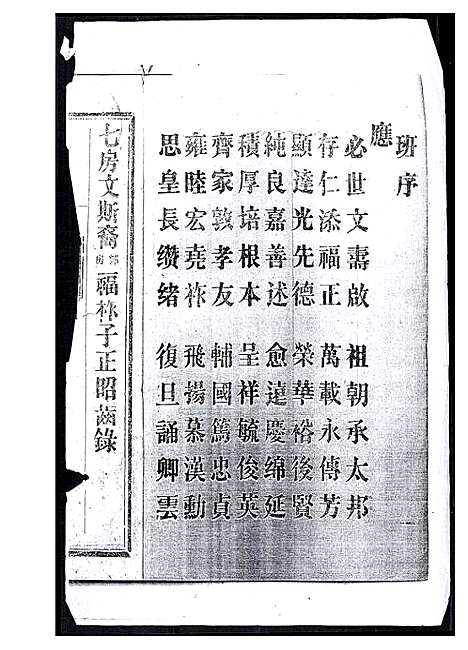 班序
應
必世文壽啟 祖朝承太邦
存仁添福正 萬載永傳芳
顯達光先德 榮華裕後賢
純良嘉善述 愈遠慶綿延
積厚培根本 呈祥毓俊英
齊家敦孝友 輔國篤忠貞
雍睦宏堯祚 飛揚慕漢勳
思皇長纘緒 復旦誦卿雲
七房文斯裔 房福祚子正昭齒錄